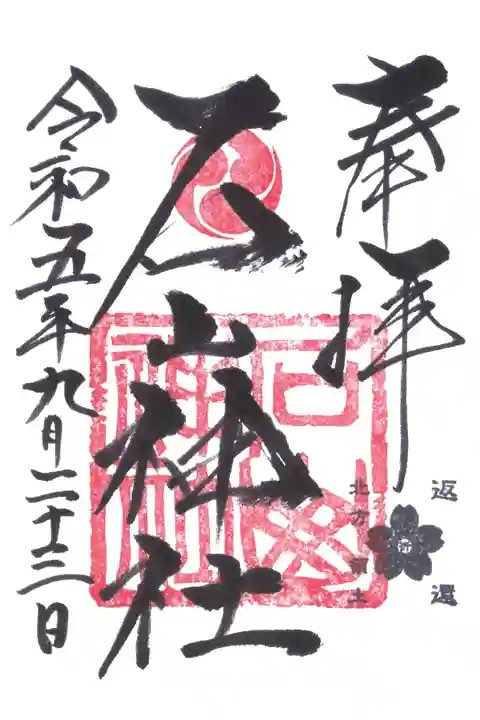 奉拝
石山神社
令和五年九月二十三日
返還
北方領土